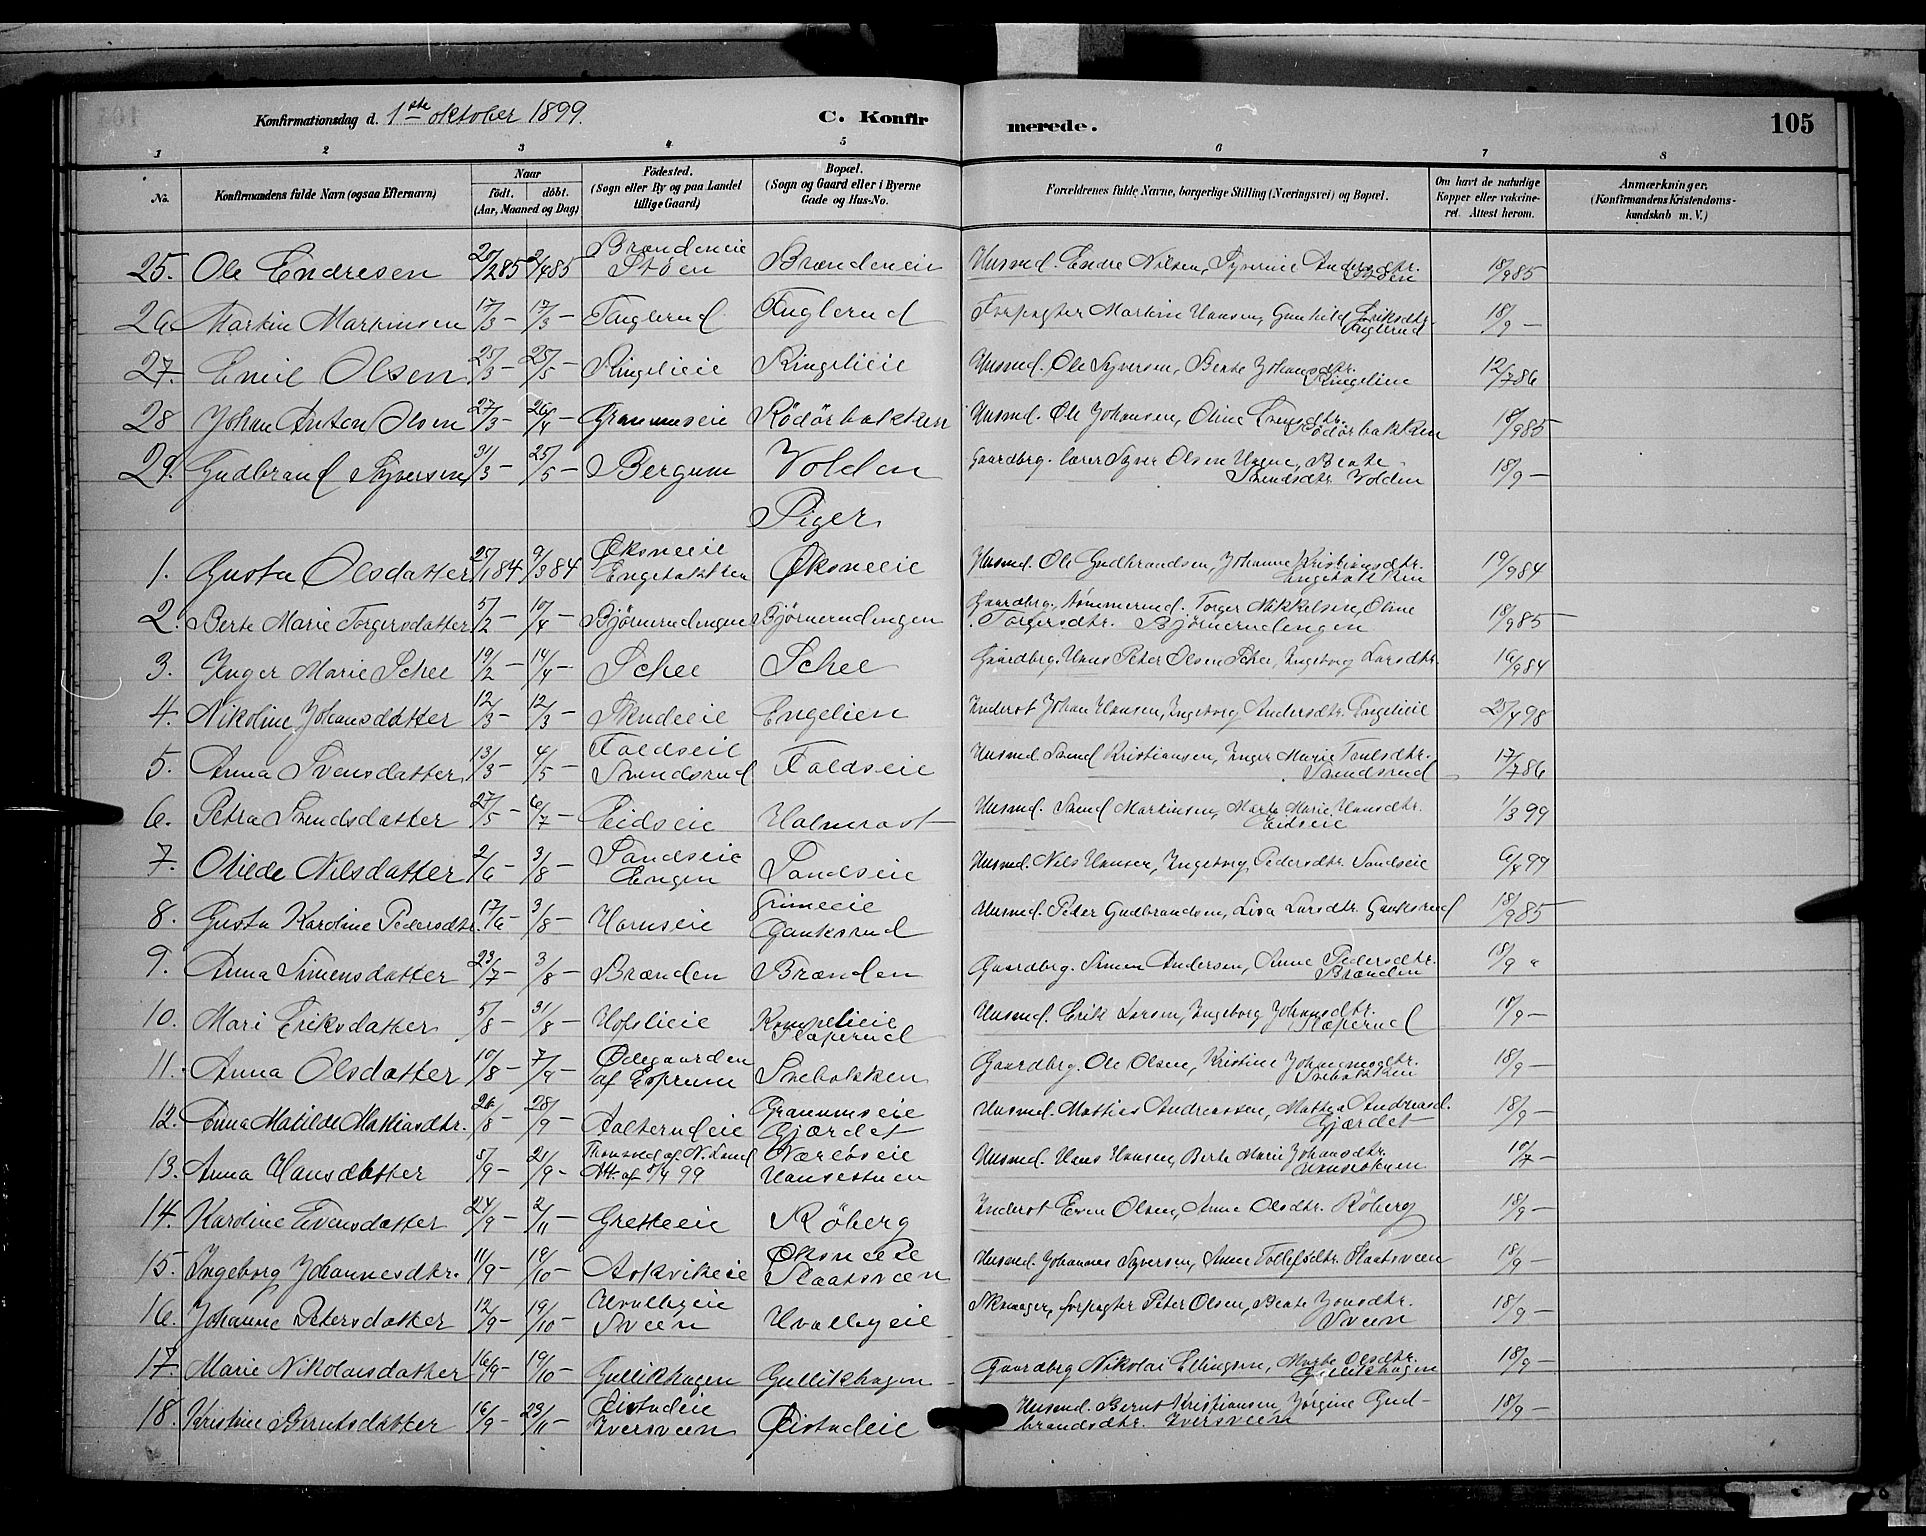 Konfirmationsdag d. 1ste oktober 1899. C. Konfirmerede. 105
1 2 3 4 5 6 7 8
No. Konfirmandens fulde Navn (ogsaa Efternavn) Naar født. døbt. (Aar, Maaned og Dag) Fødested. (Sogn eller By og paa Landet tillige Gaard) Bopæl. (Sogn og Gaard eller i Byerne Gade og Hus-No. Forældrenes fulde Navne, borgerlige Stilling (Næringsvei) og Bopæl. Om havt de naturlige Kopper eller vakcineret. Attest herom. Anmærkninger. (Konfirmandens Kristendomskundskab m. V.)
25. Ole Endresen 20/2 85 2/4 85 Brændeneie Støen Brændeneie Husmd. Endre Nilsen, Syverine Andersdtr. Støen 18/9 85
26 Martin Martinsen 17/3 – 17/3 – Fuglerud Fuglerud Forpagter Martin Hansen, Gunhild Eriksdtr. Fuglerud 18/9 –
27. Emil Olsen 25/3 – 25/5 – Ringelieie Ringelieie Husmd. Ole Syversen, Beate Johansdtr. Ringelieie 12/7 86
28 Johan Anton Olsen 27/3 – 26/4 – Granumseie Rödörbakken Husmd. Ole Johansen, Oline Evensdtr. Rödörbakken 18/9 85
29. Gudbrand Syversen 31/3 – 25/5 – Bergum Volden Gaardbrg. lærer Syver Olsen Hagene, Beate Svendsdtr. Volden 18/9 –
Piger
1. Gusta Olsdatter 25/1 84 9/3 84 Øksneeie Engebakken Øksneeie Husmd. Ole Gudbrandsen, Johanne Kristiansdtr. Engebakken 19/9 84
2. Berte Marie Torgersdatter 5/2 – 10/4 – Bjørnerudengen Bjørnerudengen Gaardbrg. tømmermd. Torger Mikkelsen, Oline Torgersdtr. Bjørnerudengen 18/9 85
3. Inger Marie Schee 19/2 – 14/4 – Schee Schee Gaardbrg. Hans Peter Olsen Schee, Ingeborg Larsdtr. 16/9 84
4. Nikoline Johansdatter 12/3 – 12/3 – Skudeie Engelien Inderst Johan Hansen, Ingeborg Andersdtr. Engelieie 25/4 98
5. Anna Svensdatter 13/3 – 4/5 – Foldseie Svendsrud Foldseie Husmd. Svend Kristiansen, Inger Marie Paulsdtr. Svendsrud 17/7 86
6. Petra Svendsdatter 27/5 – 6/7 – Eidseie Halmrast Husmd. Svend Martinsen, Marte Marie Hansdtr. Eidseie 1/3 99
7. Otilde Nilsdatter 2/6 – 3/8 – Sandseie Engen Sandseie Husmd. Nils Hansen, Ingeborg Pedersdtr. Sandseie 6/4 99
8. Gusta Karoline Pedersdtr. 17/6 – 3/8 – Hamseie Grimeeie Gauksrud Husmd. Peder Gudbrandsen, Lisa Larsdtr. Gauksrud 18/9 85
9. Anna Simensdatter 23/7 – 3/8 – Brænden Brænden Gaardbrg. Simen Andersen, Anne Pedersdtr. Brænden 18/9 "
10. Mari Eriksdatter 5/8 – 31/8 – Hofslieie Kompelieie Slaperud Husmd. Erik Larsen, Ingeborg Johansdtr. Slaperud 18/9 –
11. Anna Olsdatter 10/8 – 7/9 – Ødegaarden af Esperum Snebakken Gaardbrg. Ole Olsen, Kristine Johannesdtr. Snebakken 18/9 –
12. Anna Matilde Mathiasdtr. 26/8 – 28/9 – Aalterudeie Granumseie Gjærdet Husmd. Mathias Andreassen, Mathea Andreasd. Gjærdet 18/9 –
13. Anna Hansdatter 8/9 – 21/9 – Att. af 8/9 99 Næreseie Hansestuen Husmd. Hans Hansen, Berte Marie Johansdtr. Hansestuen 10/7 –
14. Karoline Evensdatter 24/9 – 2/11 – Gretteeie Røberg Inderst Even Olsen, Anne Olsdtr. Røberg 18/9 –
15. Ingeborg Johannesdtr. 11/9 – 19/10 – Askvikeie Øksneeie Slaatsveen Husmd. Johannes Syversen, Anne Tollefsdtr. Slaatsveen 18/9 –
16. Johanne Petersdatter 12/9 – 19/10 – Hvalbyeie Sveen Hvalbyeie Skomager, forpagter Peter Olsen, Beate Jonsdtr. Sveen 18/9 –
17. Marie Nikolaisdatter 16/9 – 19/10 – Gullikhagen Gullikhagen Gaardbrg. Nikolai Ellingsen, Marte Olsdtr. Gullikhagen 18/9 –
18. Kristine Berntsdatter 16/9 – 23/11 – Øistadeie Iversveen Øistadeie Husmd. Bernt Kristiansen, Jørgine Gudbrandsdtr. Iversveen 18/9 –